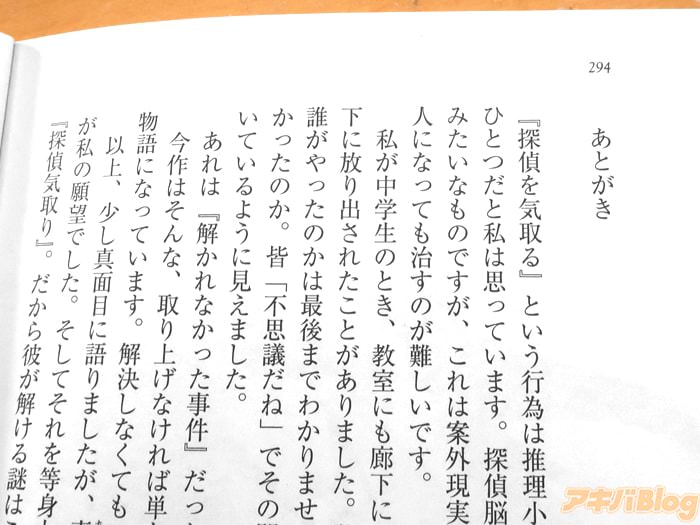 294
あとがき
『探偵を気取る』という行為は推理小
ひとつだと私は思っています。探偵脳
みたいなものですが、これは案外現実
人になっても治すのが難しいです。
私が中学生のとき、教室にも廊下に
下に放り出されたことがありました。
誰がやったのかは最後までわかりませ
かったのか。皆「不思議だね」でその
いているように見えました。
あれは『解かれなかった事件』だっ
今作はそんな、取り上げなければ単
物語になっています。解決しなくても
以上、少し真面目に語りましたが、
が私の願望でした。そしてそれを等身
『探偵気取り』。だから彼が解ける謎は
アキバBlog